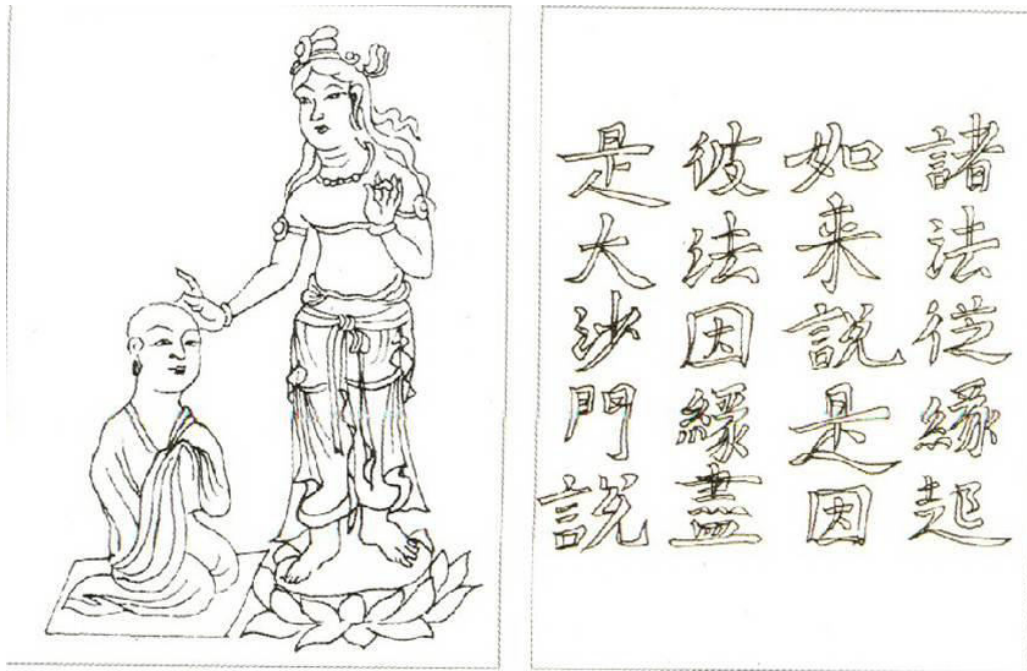 諸法従緣起
如来説是因
彼法因緣盡
是大沙門説